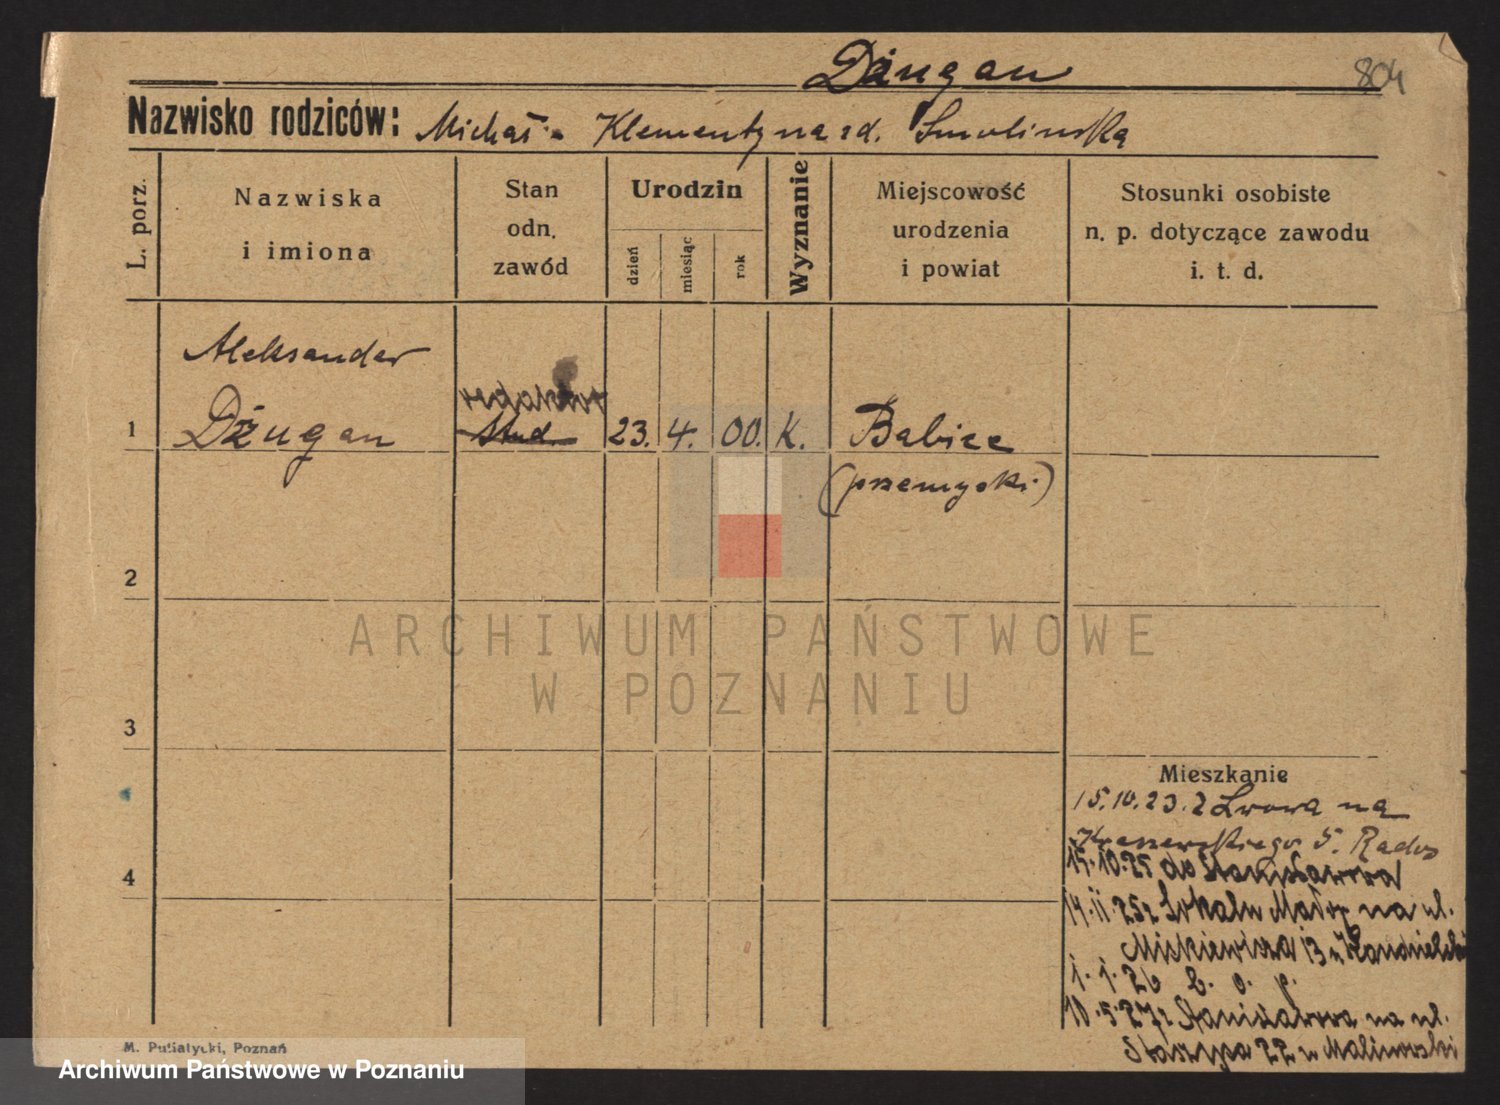 Dżugan
804
Nazwisko rodziców: Michał - Klementyna zd. Smolińska
L. porz.
Nazwiska
i imiona
Stan
odn.
zawód
Urodzin
dzień
miesiąc
rok
Wyznanie
Miejscowość
urodzenia
i powiat
Stosunki osobiste
n. p. dotyczące zawodu
i. t. d.
Aleksander
redaktor
1 Dżugan stud. 23. 4. 00. K. Babice
(przemyski)
2
ARCHIWUM PAŃSTWOWE
W POZNANIU
3
Mieszkanie
15.10.23. z Lwowa na
Kraszewskiego 5.
4
15.10.25 do Stanisławowa
14.11.25 z na ul.
Mickiewicza 13
1.1.26 b. o. p.
10.5.27 z Stanisławowa na ul.
22 Malinowski
M. Putiatycki, Poznań
Archiwum Państwowe w Poznaniu